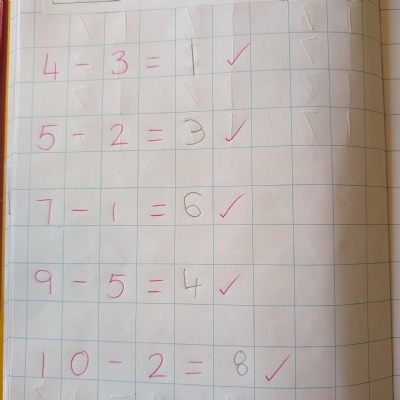 4 - 3 = 1 ✓
5 - 2 = 3 ✓
7 - 1 = 6 ✓
9 - 5 = 4 ✓
10 - 2 = 8 ✓